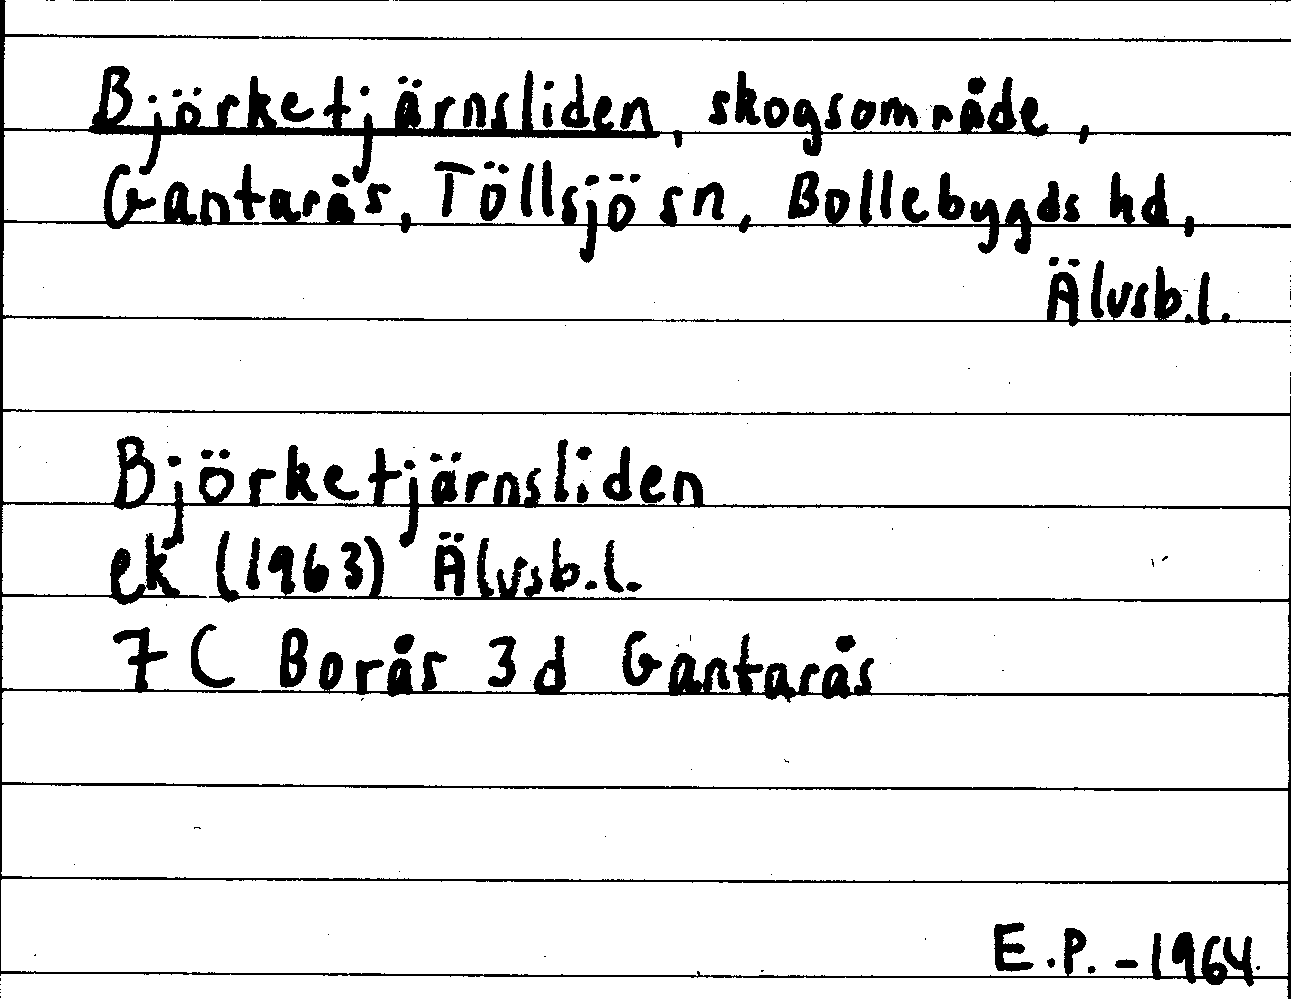 Björketjärnsliden, skogsområde,
Gantarås, Töllsjö sn, Bollebygds hd,
Älvsb.l.
Björketjärnsliden
ek (1963) Älvsb.l.
7 C Borås 3 d Gantarås
E.P. - 1964